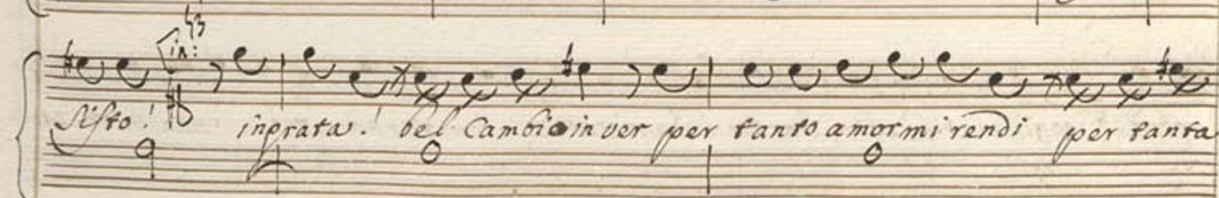 43
in:
Sisto! inprata! bel Cambio in ver per tanto amor mi rendi per tanta